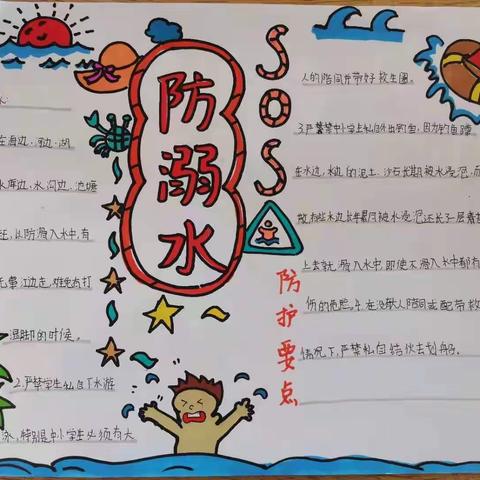 防溺水
SOS
水
在海边、河边、湖
水库边、水沟边、池塘
玩,以防滑入水中,有
无事江边走,难免有打
湿脚的时候。
2.严禁学生私自下水游
泳,特别是中小学生必须有大
人的陪同并带好救生圈。
3.严禁中小学生私自外出钓鱼,因为钓鱼蹲
在水边,水边的泥土、沙石长期被水浸泡,而
故,有些水边长年累月被水浸泡还长了一层青苔
上去就滑入水中,即使不滑入水中都有
伤的危险。4.在没有大人陪同或配带救
情况下,严禁私自结伙去划船。
防护要点